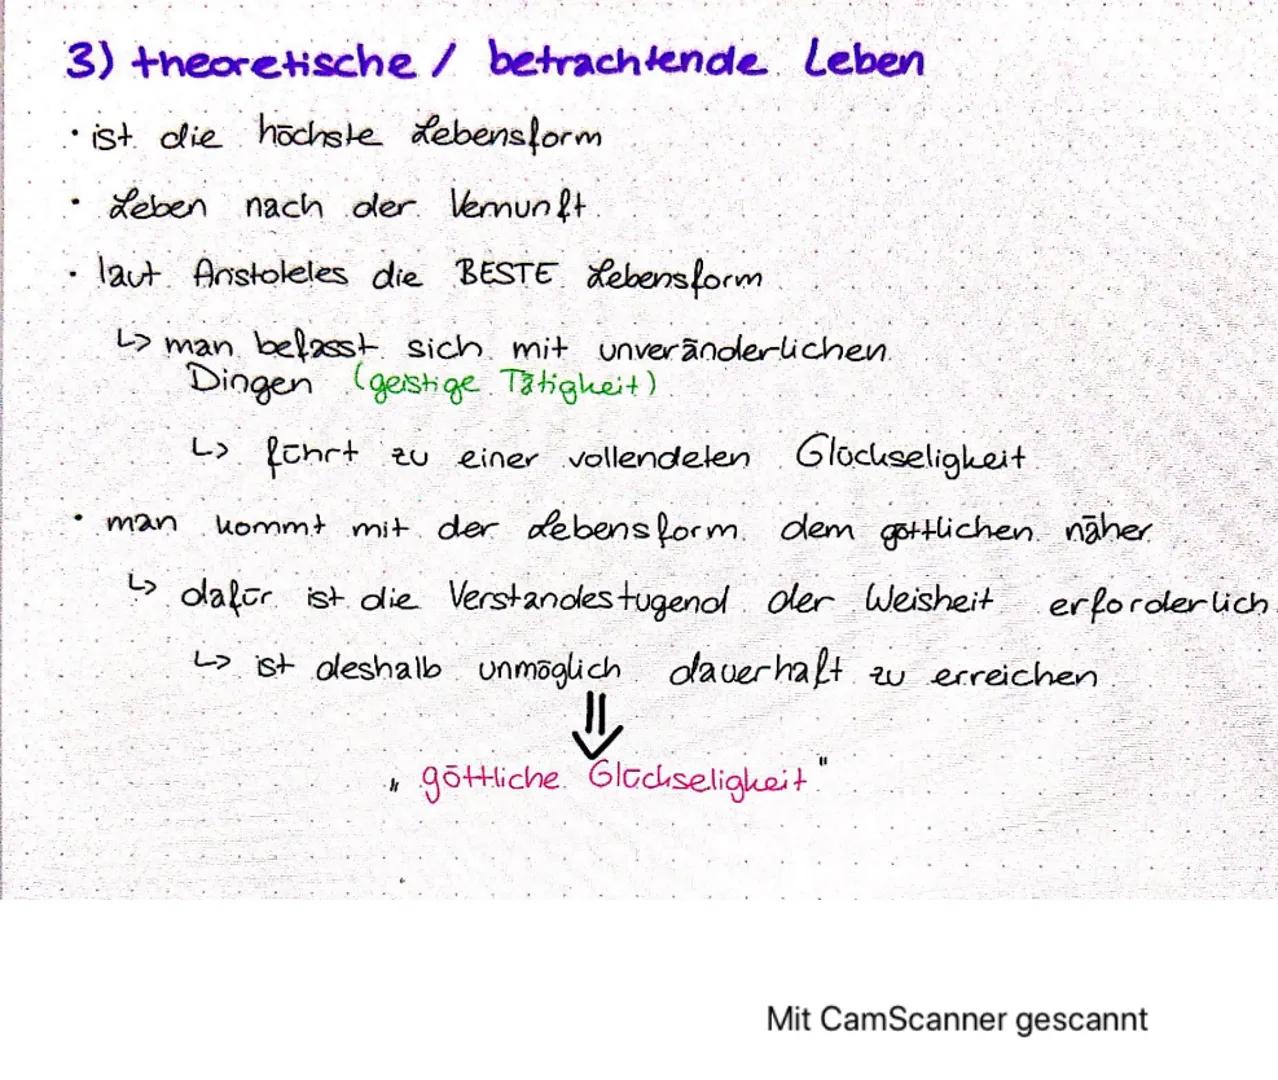 3) theoretische / betrachtende Leben
· ist die höchste Lebensform
· Leben nach der Vernunft
· laut Aristoteles die BESTE Lebensform
↳ man befasst sich mit unveränderlichen
Dingen (geistige Tätigkeit)
↳ führt zu einer vollendeten Glückseligkeit
· man kommt mit der Lebensform dem göttlichen näher
↳ dafür ist die Verstandestugend der Weisheit erforderlich
↳ ist deshalb unmöglich dauerhaft zu erreichen
⇓
„göttliche Glückseligkeit"
Mit CamScanner gescannt